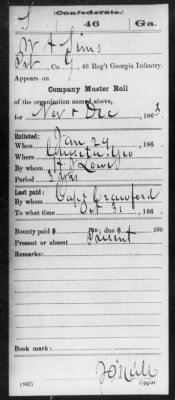 (Confederate.)
S 46 Ga.
W A Sims
Pvt, Co. G, 46 Reg't Georgia Infantry.
Appears on
Company Muster Roll
of the organization named above,
for Nov & Dec, 1863
Enlisted:
When Jan 29, 186
Where Geo
By whom
Period 3 yrs
Last paid:
By whom Capt Crawford
To what time Oct 31, 186
Bounty paid $ 100; due $ 100
Present or absent Present
Remarks:
Book mark:
(642) Copyist.